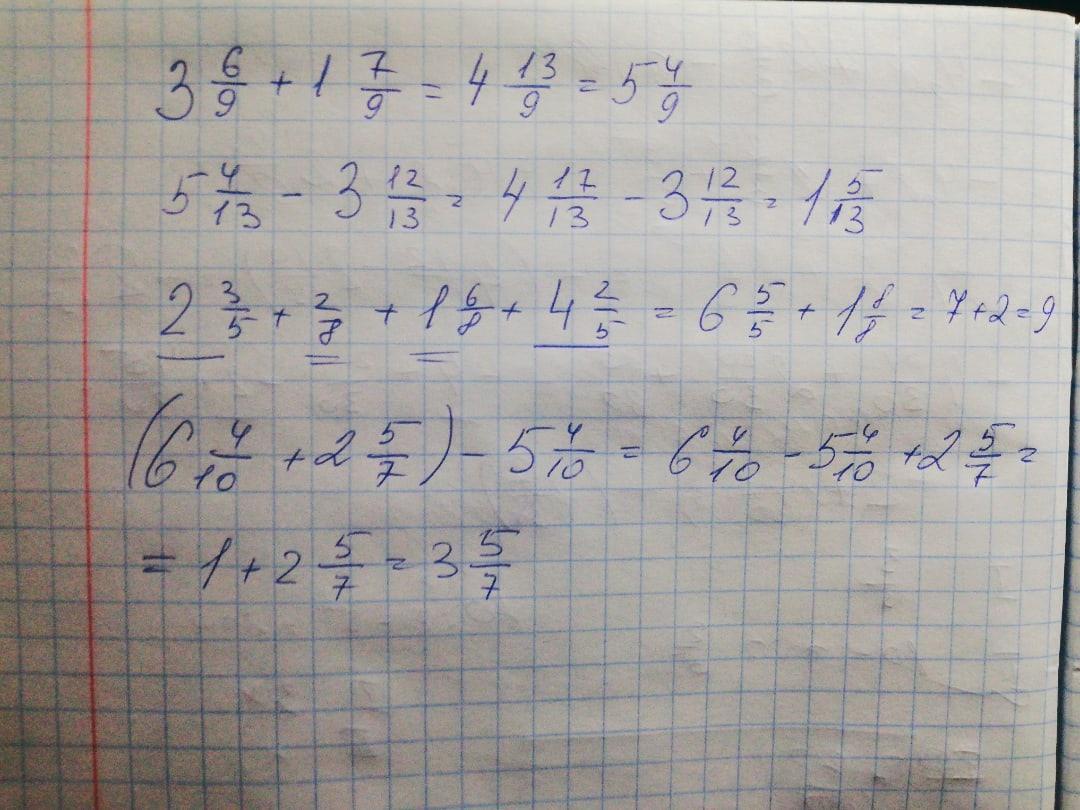 3 6/9 + 1 7/9 = 4 13/9 = 5 4/9
5 4/13 - 3 12/13 = 4 17/13 - 3 12/13 = 1 5/13
2 3/5 + 2/8 + 1 6/8 + 4 2/5 = 6 5/5 + 1 8/8 = 7+2=9
(6 4/10 + 2 5/7) - 5 4/10 = 6 4/10 - 5 4/10 + 2 5/7 =
= 1 + 2 5/7 = 3 5/7